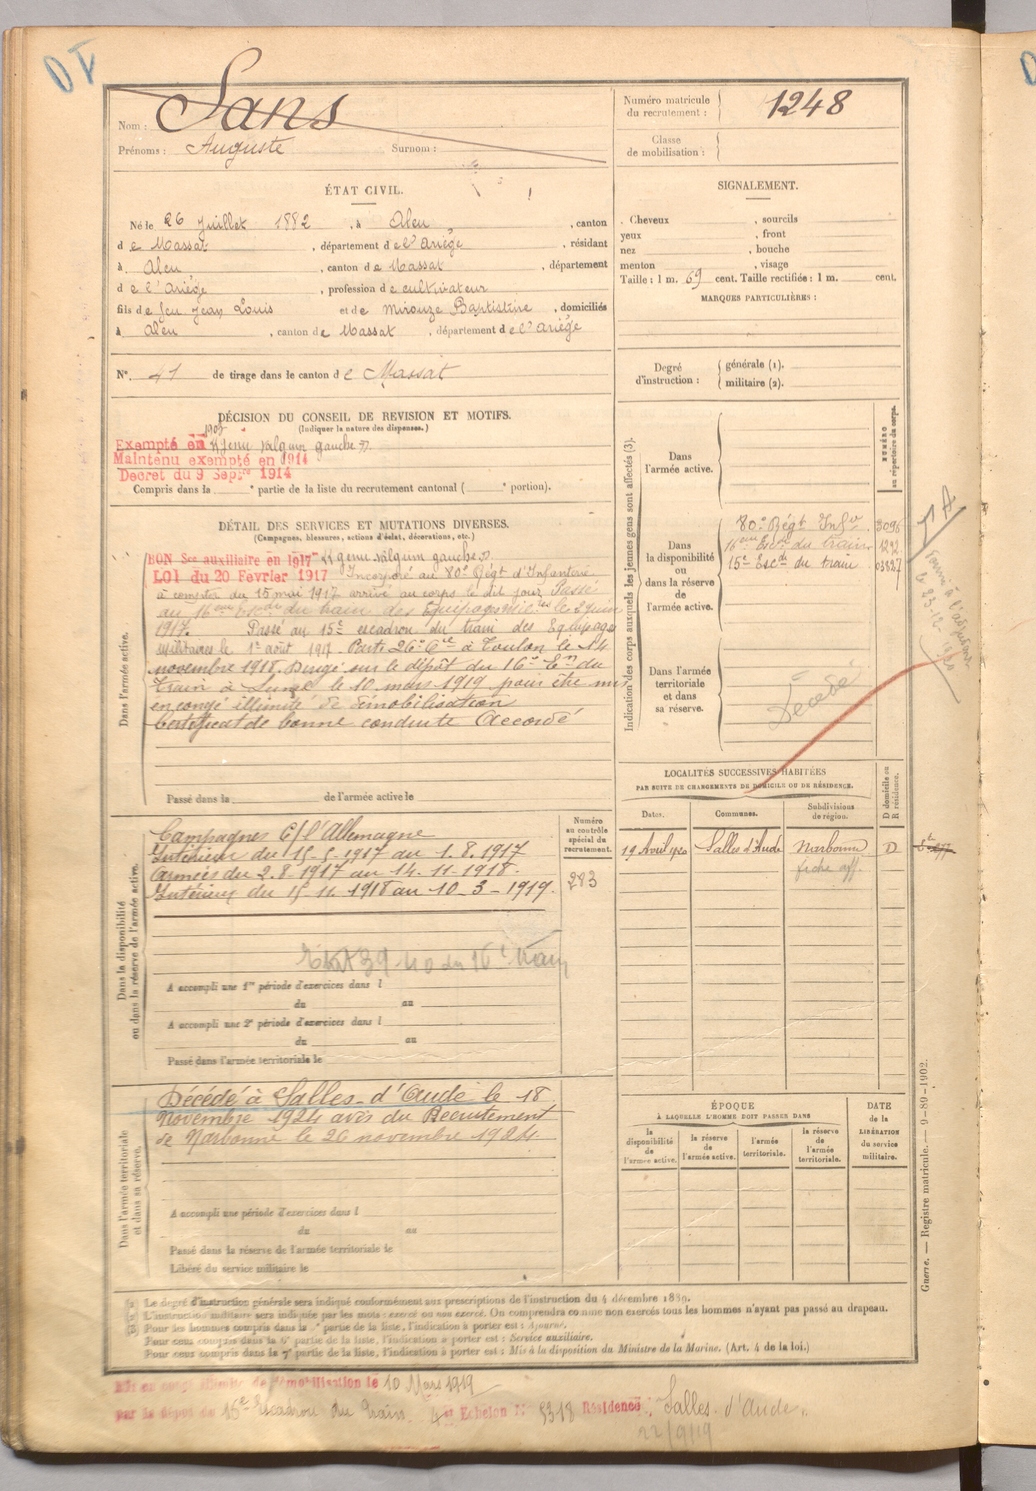 Nom : Sans
Prénoms : Auguste Surnom :
Numéro matricule du recrutement : 1248
Classe de mobilisation :
ÉTAT CIVIL.
Né le 26 Juillet 1882, à Aleu, canton
de Massat, département de l'Ariège, résidant
à Aleu, canton de Massat, département
de l'Ariège, profession de cultivateur
fils de feu Jean Louis et de Mirouze Baptistine, domiciliés
à Aleu, canton de Massat, département de l'Ariège
N° 41 de tirage dans le canton de Massat
SIGNALEMENT.
Cheveux , sourcils
yeux , front
nez , bouche
menton , visage
Taille : 1 m. 69 cent. Taille rectifiée : 1 m. cent.
MARQUES PARTICULIÈRES :
Degré d'instruction : générale (1).
militaire (2).
DÉCISION DU CONSEIL DE REVISION ET MOTIFS.
(Indiquer la nature des dispenses.)
Exempté en 1903 genu valgum gauche
Maintenu exempté en 1914
Decret du 9 Septre 1914
Compris dans la e partie de la liste du recrutement cantonal ( e portion).
DÉTAIL DES SERVICES ET MUTATIONS DIVERSES.
(Campagnes, blessures, actions d'éclat, décorations, etc.)
Dans l'armée active.
BON Sce auxiliaire en 1917 genu valgum gauche
LOI du 20 Février 1917 Incorporé au 80e Régt d'Infanterie
à compter du 15 mai 1917 arrivé au corps le dit jour Passé
au 16eme Escon du train des Equipages Mil.res le 2 juin
1917. Passé au 15e escadron du train des Equipages
Militaires le 1er août 1917. Parti 26e Cie à Toulon le 14
novembre 1918. Dirigé sur le dépôt du 16e Eon du
Train à Lunel le 10 mars 1919 pour être mis
en congé illimité de démobilisation
Certificat de bonne conduite Accordé
Passé dans la de l'armée active le
Indication des corps auxquels les jeunes gens sont affectés (3).
NUMÉRO au répertoire du corps.
Dans l'armée active.
Dans la disponibilité ou dans la réserve de l'armée active.
80e Régt Infie 3096
16eme Escon du train 1292
15e Escdn du train 03827
Dans l'armée territoriale et dans sa réserve.
Décédé
LOCALITÉS SUCCESSIVES HABITÉES
PAR SUITE DE CHANGEMENTS DE DOMICILE OU DE RÉSIDENCE.
Dates. Communes. Subdivisions de région. D domicile ou R résidence.
19 Avril 1920 Salles d'Aude Narbonne D
fiche aff.
Dans la disponibilité ou dans la réserve de l'armée active.
Numéro au contrôle spécial du recrutement.
283
Campagnes C/ l'Allemagne
Intérieur du 15-5-1917 au 1.8.1917
Armées du 2.8.1917 au 14-11-1918.
Intérieur du 15-11-1918 au 10-3-1919.
A accompli une 1re période d'exercices dans l
du au
A accompli une 2e période d'exercices dans l
du au
Passé dans l'armée territoriale le
Dans l'armée territoriale et dans sa réserve.
Décédé à Salles-d'Aude le 18
Novembre 1924 avis du Recrutement
de Narbonne le 26 novembre 1924.
A accompli une période d'exercices dans l
du au
Passé dans la réserve de l'armée territoriale le
Libéré du service militaire le
ÉPOQUE
À LAQUELLE L'HOMME DOIT PASSER DANS
la disponibilité de l'armée active.
la réserve de l'armée active.
l'armée territoriale.
la réserve de l'armée territoriale.
DATE de la LIBÉRATION du service militaire.
Guerre. — Registre matricule. — 9-89-1902.
Le degré d'instruction générale sera indiqué conformément aux prescriptions de l'instruction du 4 décembre 1889.
L'instruction militaire sera indiquée par les mots : exercé ou non exercé. On comprendra comme non exercés tous les hommes n'ayant pas passé au drapeau.
Pour les hommes compris dans la partie de la liste, l'indication à porter est : Ajourné.
Pour ceux compris dans la 6e partie de la liste, l'indication à porter est : Service auxiliaire.
Pour ceux compris dans la 7e partie de la liste, l'indication à porter est : Mis à la disposition du Ministre de la Marine. (Art. 4 de la loi.)
Mis en congé illimité de démobilisation le 10 Mars 1919
par le dépôt du 16e Escadron du Train. Echelon N° 5318 Résidence : Salles d'Aude.
22/9/19